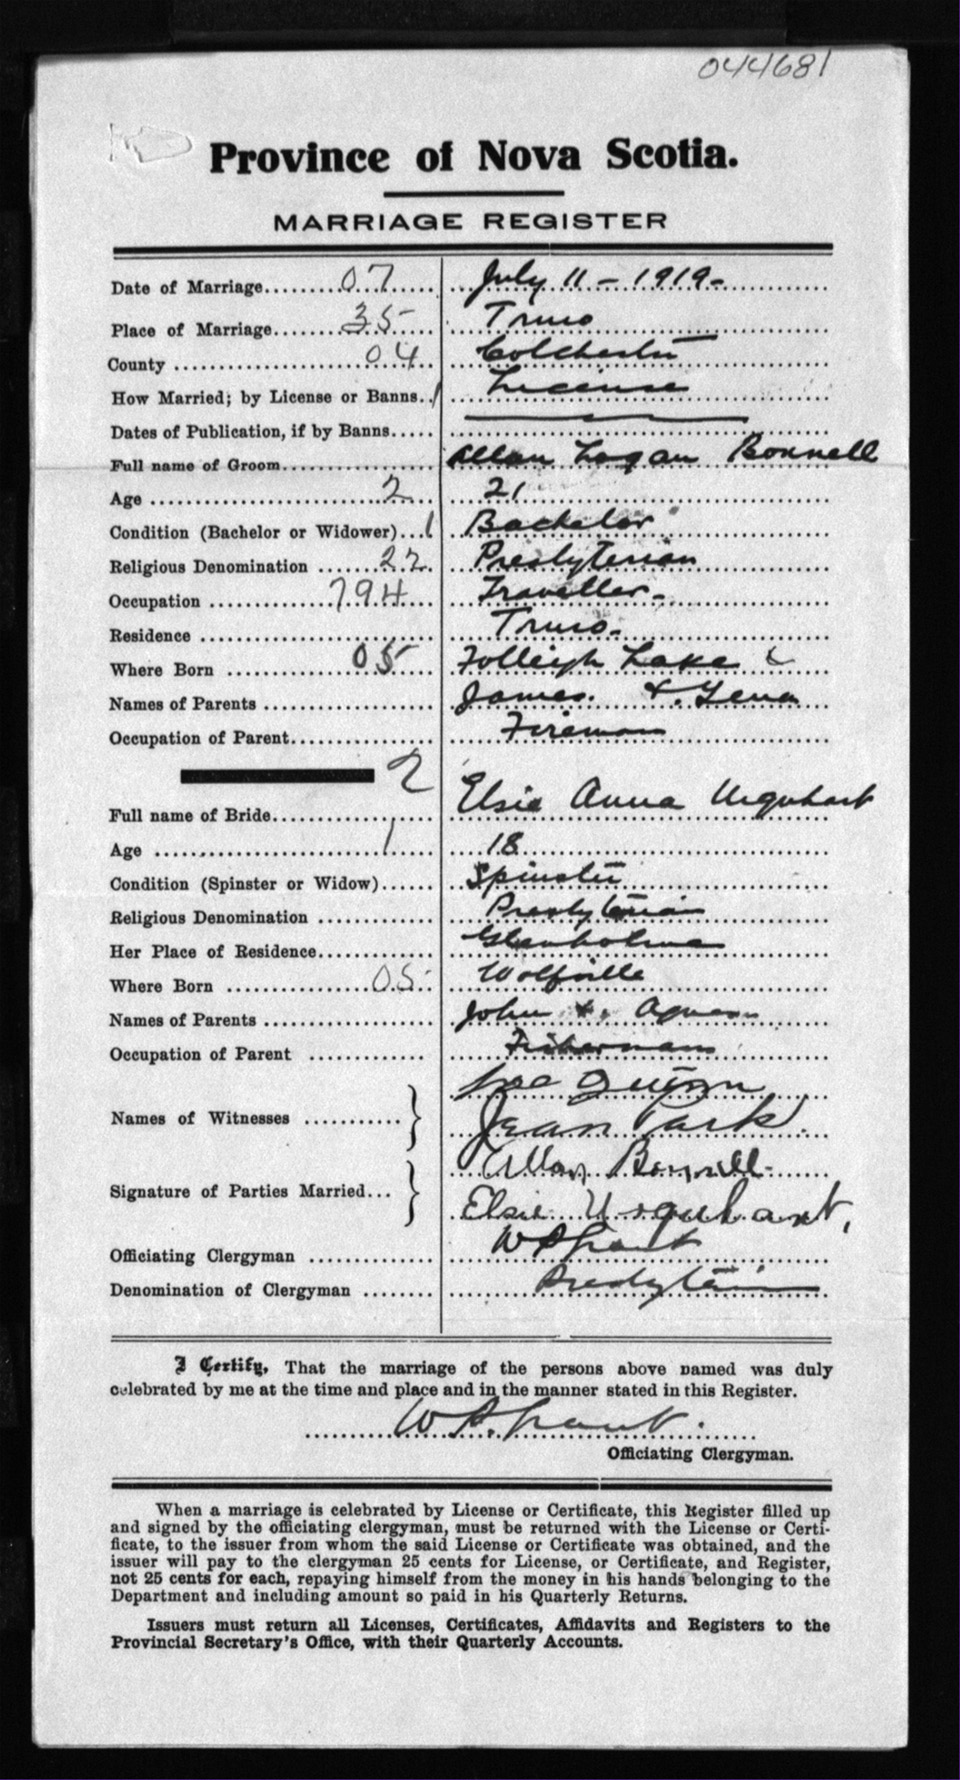 044681
Province of Nova Scotia.
MARRIAGE REGISTER
Date of Marriage........07..... July 11 - 1919 -
Place of Marriage.......35..... Truro
County ..................04.. Colchester
How Married; by License or Banns..1 License
Dates of Publication, if by Banns.....
Full name of Groom................... Allan Logan Bonnell
Age ..........................2.... 21
Condition (Bachelor or Widower)...1 Bachelor
Religious Denomination ......22. Presbyterian
Occupation ............794.... Traveller -
Residence ........................... Truro.
Where Born ..............05.. Folleigh Lake
Names of Parents .................... James. & Lena
Occupation of Parent................. Fireman
2
Full name of Bride................... Elsie Anna Urquhart
Age ..........................1.... 18
Condition (Spinster or Widow)...... Spinster
Religious Denomination ............. Presbyterian
Her Place of Residence.............. Glenholme
Where Born .................05.. Wolfville
Names of Parents .................... John & Agnes
Occupation of Parent ............. Fisherman
Names of Witnesses ...........}
Jean Park.
Signature of Parties Married...} Allan Bonnell
Elsie Urquhart,
Officiating Clergyman .............. W P Grant
Denomination of Clergyman ........ Presbyterian
I Certify, That the marriage of the persons above named was duly
celebrated by me at the time and place and in the manner stated in this Register.
W P. Grant.
Officiating Clergyman.
When a marriage is celebrated by License or Certificate, this Register filled up
and signed by the officiating clergyman, must be returned with the License or Certi-
ficate, to the issuer from whom the said License or Certificate was obtained, and the
issuer will pay to the clergyman 25 cents for License, or Certificate, and Register,
not 25 cents for each, repaying himself from the money in his hands belonging to the
Department and including amount so paid in his Quarterly Returns.
Issuers must return all Licenses, Certificates, Affidavits and Registers to the
Provincial Secretary's Office, with their Quarterly Accounts.